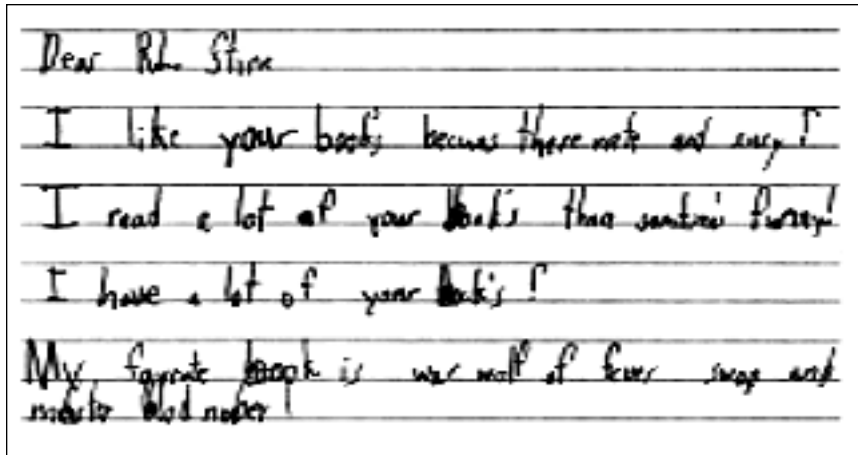 Dear R.L. Stine
I like your book's becuas there nete and easy!
I read a lot of your book's thea somtimes funny!
I have a lot of your book's!
My favorite book is war wolf of fever swap and
monster blod